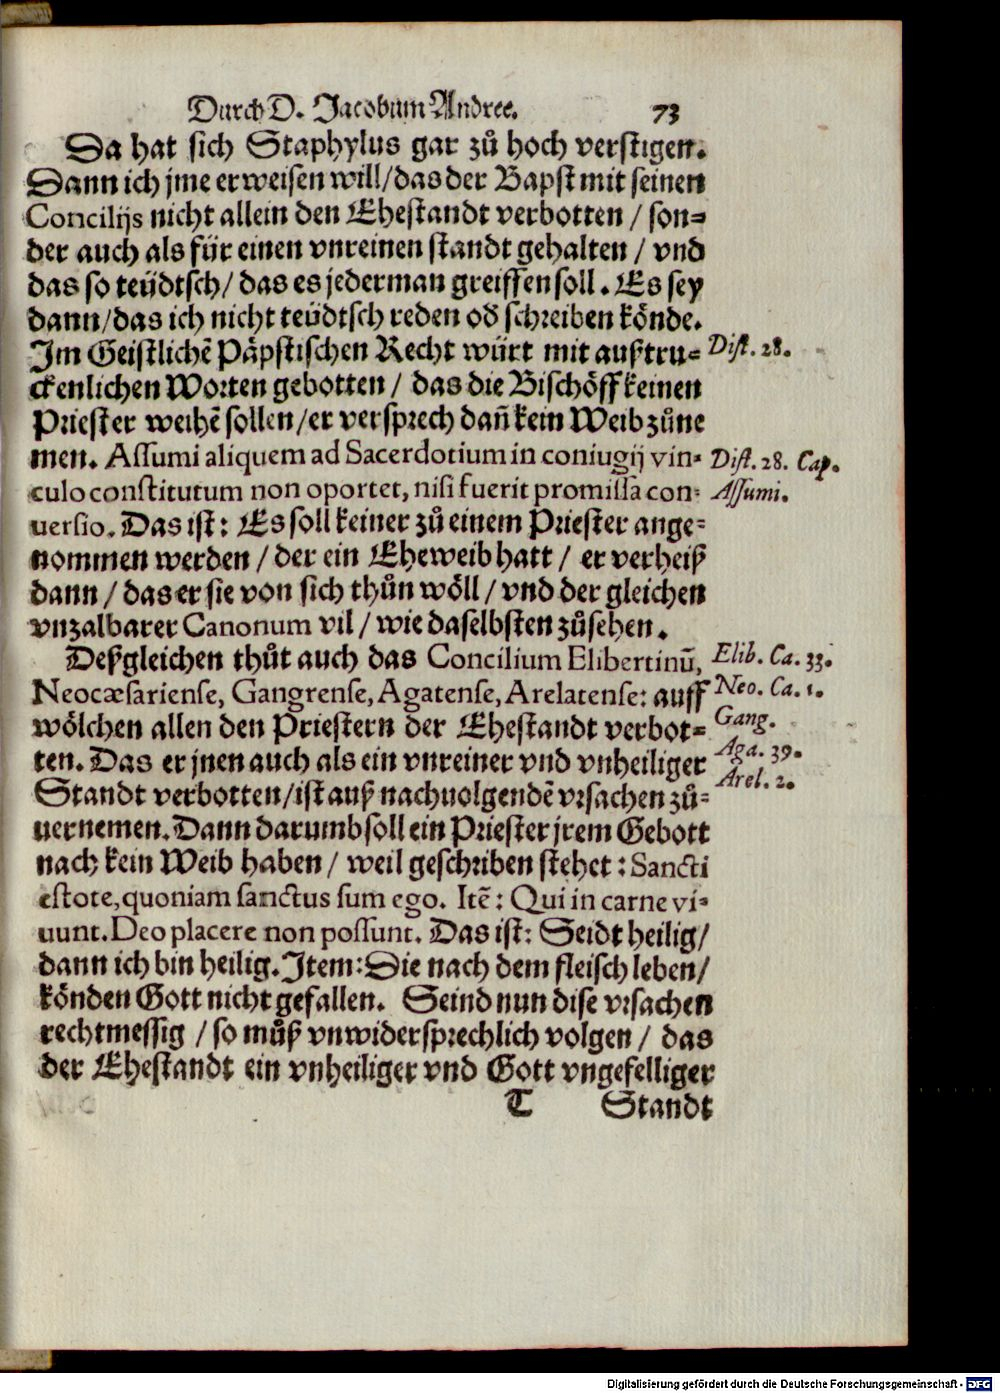 Durch D. Jacobum Andree. 73
Da hat sich Staphylus gar zů hoch verstigen.
Dann ich jme erweisen will/das der Bapst mit seinen
Concilijs nicht allein den Ehestandt verbotten / son=
der auch als für einen vnreinen standt gehalten / vnd
das so teüdtsch/ das es jederman greiffen soll. Es sey
dann/das ich nicht teüdtsch reden od̕ schreiben könde.
Im Geistlichẽ Päpstischen Recht würt mit außtru= Dist. 28.
ckenlichen Worten gebotten / das die Bischöff keinen
Priester weihẽ sollen/er versprech dañ kein Weib zůne
men. Assumi aliquem ad Sacerdotium in coniugij vin= Dist. 28. Cap.
culo constitutum non oportet, nisi fuerit promissa con= Assumi.
uersio. Das ist: Es soll keiner zů einem Priester ange=
nommen werden / der ein Eheweib hatt / er verheiß
dann / das er sie von sich thůn wöll / vnd der gleichen
vnzalbarer Canonum vil / wie daselbsten zůsehen.
Deßgleichen thůt auch das Concilium Elibertinũ, Elib. Ca. 33.
Neocæsariense, Gangrense, Agatense, Arelatense: auff Neo. Ca. 1.
wölchen allen den Priestern der Ehestandt verbot= Gang.
ten. Das er jnen auch als ein vnreiner vnd vnheiliger Aga. 39.
Standt verbotten/ist auß nachuolgendẽ vrsachen zů= Arel. 2.
uernemen. Dann darumb soll ein Priester jrem Gebott
nach kein Weib haben / weil geschriben stehet: Sancti
estote, quoniam sanctus sum ego. Itẽ: Qui in carne vi=
uunt. Deo placere non possunt. Das ist: Seidt heilig/
dann ich bin heilig. Item: Die nach dem fleisch leben/
könden Gott nicht gefallen. Seind nun dise vrsachen
rechtmessig / so můß vnwidersprechlich volgen / das
der Ehestandt ein vnheiliger vnd Gott vngefelliger
T Standt
Digitalisierung gefördert durch die Deutsche Forschungsgemeinschaft - DFG